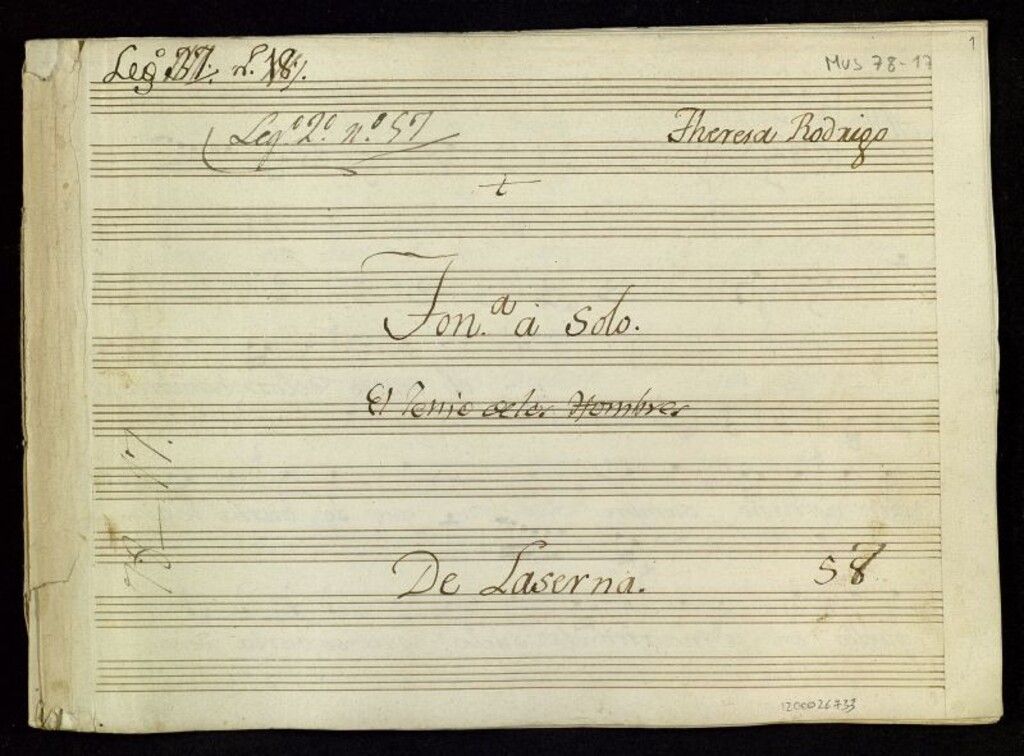 Leg.º 37. n. 18.
MUS 78-17
1
Leg.º 2º nº 57
Theresa Rodrigo
t
Ton.ª á Solo.
El Genio de los Hombres
78-17.
De Laserna.
57
1200026733